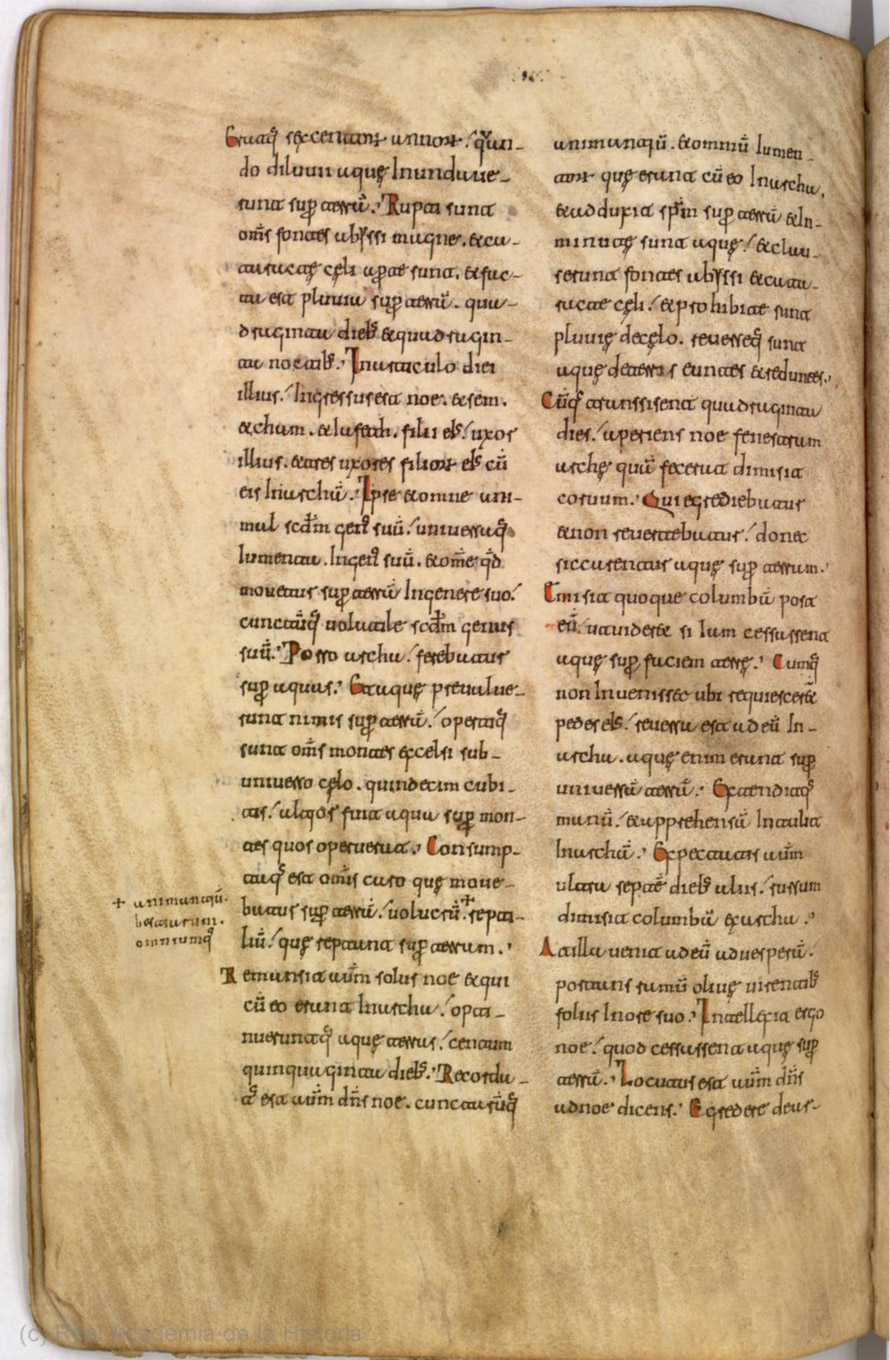 Eratq; sexcentor annor. quan-
do diluuii aquę Inundaue-
runt sup terrã. Rupti sunt
oms̃ fontes abyssi magne. & ca-
taractę cęli apte sunt. & fac-
ta est pluuia sup terrã. qua-
draginta dieb; & quadragin-
ta noctib; In articulo diei
illius. Ingressus est noe. & sem.
& cham. & Iafeth. filii ei; uxor
illius. & tres uxores filior ei; cũ
eis In archã. Ipse & omne ani-
mal scdm̃ gen; suũ. uniuersaq;
Iumenta. In gen; suũ. & om̃e qd̃
mouetur sup terrã In genere suo.
cunctũq; uolatile scdm̃ genus
suũ. Porro archa. ferebatur
sup aquas. Etaque preualue-
runt nimis sup terrã. opertiq;
sunt oms̃ montes excelsi sub-
uniuerso cęlo. quindecim cubi-
tis. altior fuit aqua sup mon-
tes quos operuerat. Consump-
taq; est omĩs caro quę moue-
batur sup terrã. uolucrũ. + repti-
liũ. quę reptant sup terram.
Remansit autm̃ solus noe & qui
cũ eo erant In archa. opti-
nueruntq; aquę terras. centum
quinquaginta dieb; Recorda-
t; est autm̃ dns̃ noe. cunctarũq;
+ animantiũ.
bestiarum.
omniumq;
animantiũ. & omniũ Iumen-
tor quę erant cũ eo In archa.
& adduxit spm̃ sup terrã & In-
minutę sunt aquę. & clau-
serunt fontes abyssi & cata-
ractae cęli. & prohibitae sunt
pluuię de cęlo. reuerseq; sunt
aquę de terris euntes & redeuntes.
Cũq; transissent quadraginta
dies. aperiens noe fenestram
archę quã fecerat dimisit
coruum. Qui egrediebatur
& non reuertebatur. donec
siccarentur aquę sup terram.
Emisit quoque columbã post
eũ. ut uideret si Iam cessassent
aquę sup faciem terrę. Cumq;
non Inuenisset ubi requiesceret
pedes ei; reuersa est ad eũ In-
archa. aquę enim erant sup
uniuersã terrã. Extenditq;
manũ. & apprehensã Intulit
In archã. Expectatis autm̃
ultra septẽ dieb; aliis. rursum
dimisit columbã ex archa.
At illa uenit ad eũ ad uesperũ.
portans ramũ oliuę uirentib;
foliis In ore suo. Intellexit ergo
noe. quod cessassent aquę sup
terrã. Locutus est autm̃ dns̃
ad noe dicens. Egredere de ar-